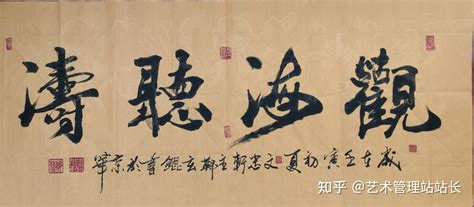 觀海聽濤
歲在壬寅初夏文忠軒主書於京華
知乎 @艺术管理站站长